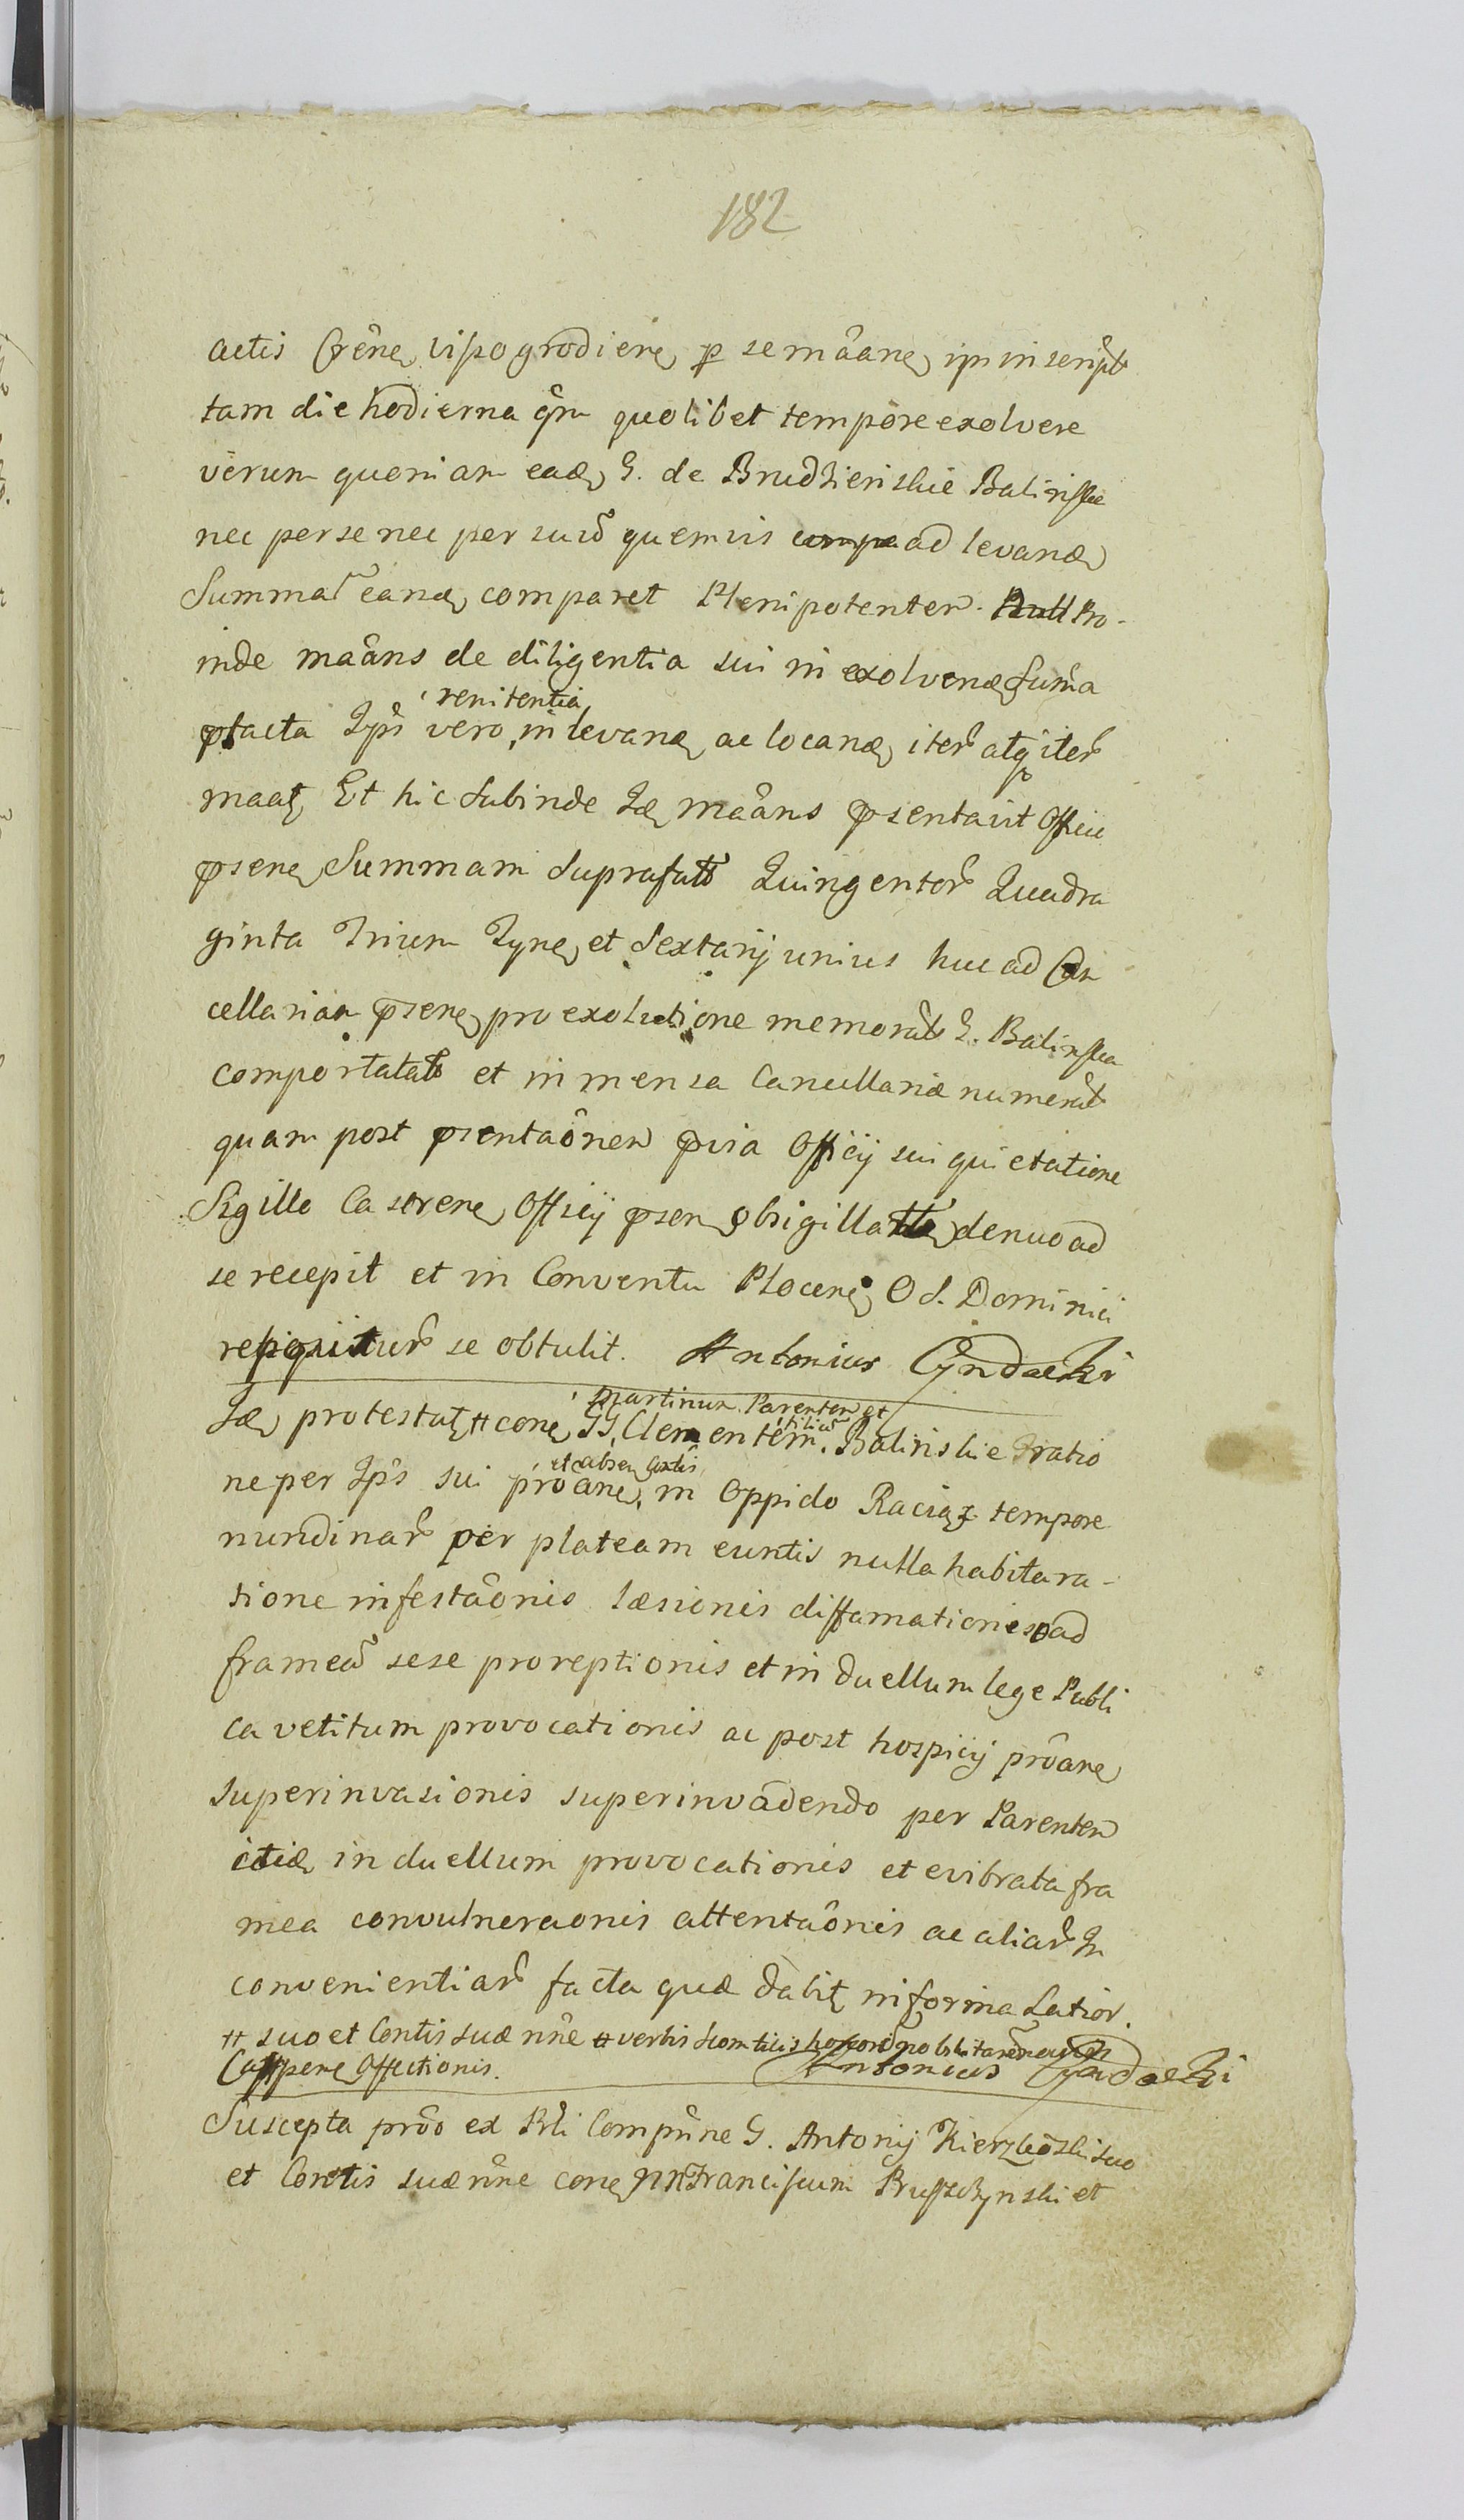 182
actis Crêne Vissogrodiene p se mâane in inscript
tam die hodierna qm quolibet tempore exolvere
verum quoniam ead G. de Brudzienskie Balinska
nec per se nec per suũ quemvis compa ad levand
Summã eand comparet Plenipotentem. Null Pro-
inde maâns de diligentia sui in exolvend Suma
renitentia
pfacta Ipŝ vero, in levand ac locand iterũ atq iterũ
maat Et hic subinde Id maâns psentavit Officio
psene Summam suprafat Quingentor Quadra
ginta Trium Tyne et Sextarij unius huc ad Can
cellariam psene pro exolutione memorat G. Balinska
comportatam et in mensa Cancellariæ numerat
quam post psentaônem pvia Officij sui quietatione
Sigillo Castrene Officij psen obsigillatta denuo ad
se recepit et in Conventu Plocene O S. Dominici
repositur se obtulit. Antonius Cyndacki
Martinum Parentem et
Id protestat # cone GG. Clementem filium Balinskie Ratio
et absen Contis
ne per Ipŝ sui prôane, in Oppido Raciąz tempore
nundinar per plateam euntis nulla habita ra-
tione infestaônis læsionis diffamationis ad
frameã sese proreptionis et in duellum lege Publi
ca vetitum provocationis ac post hospicij prôane
superinvasionis superinvadendo per Parentem
itid in duellum provocationis et evibrata fra
mea convulneraonis attentaônis ac aliar In
convenientiar facta quæ dabit in forma Latior.
# suo et Contis suæ nne # verbis
Cappene Offectionis. Antonius Cyndacki
Suscepta prôo ex Rli Compnne G. Antonij Kierzkoski suo
et Contis suæ nne cone NN Franciscum Bruszczynski et